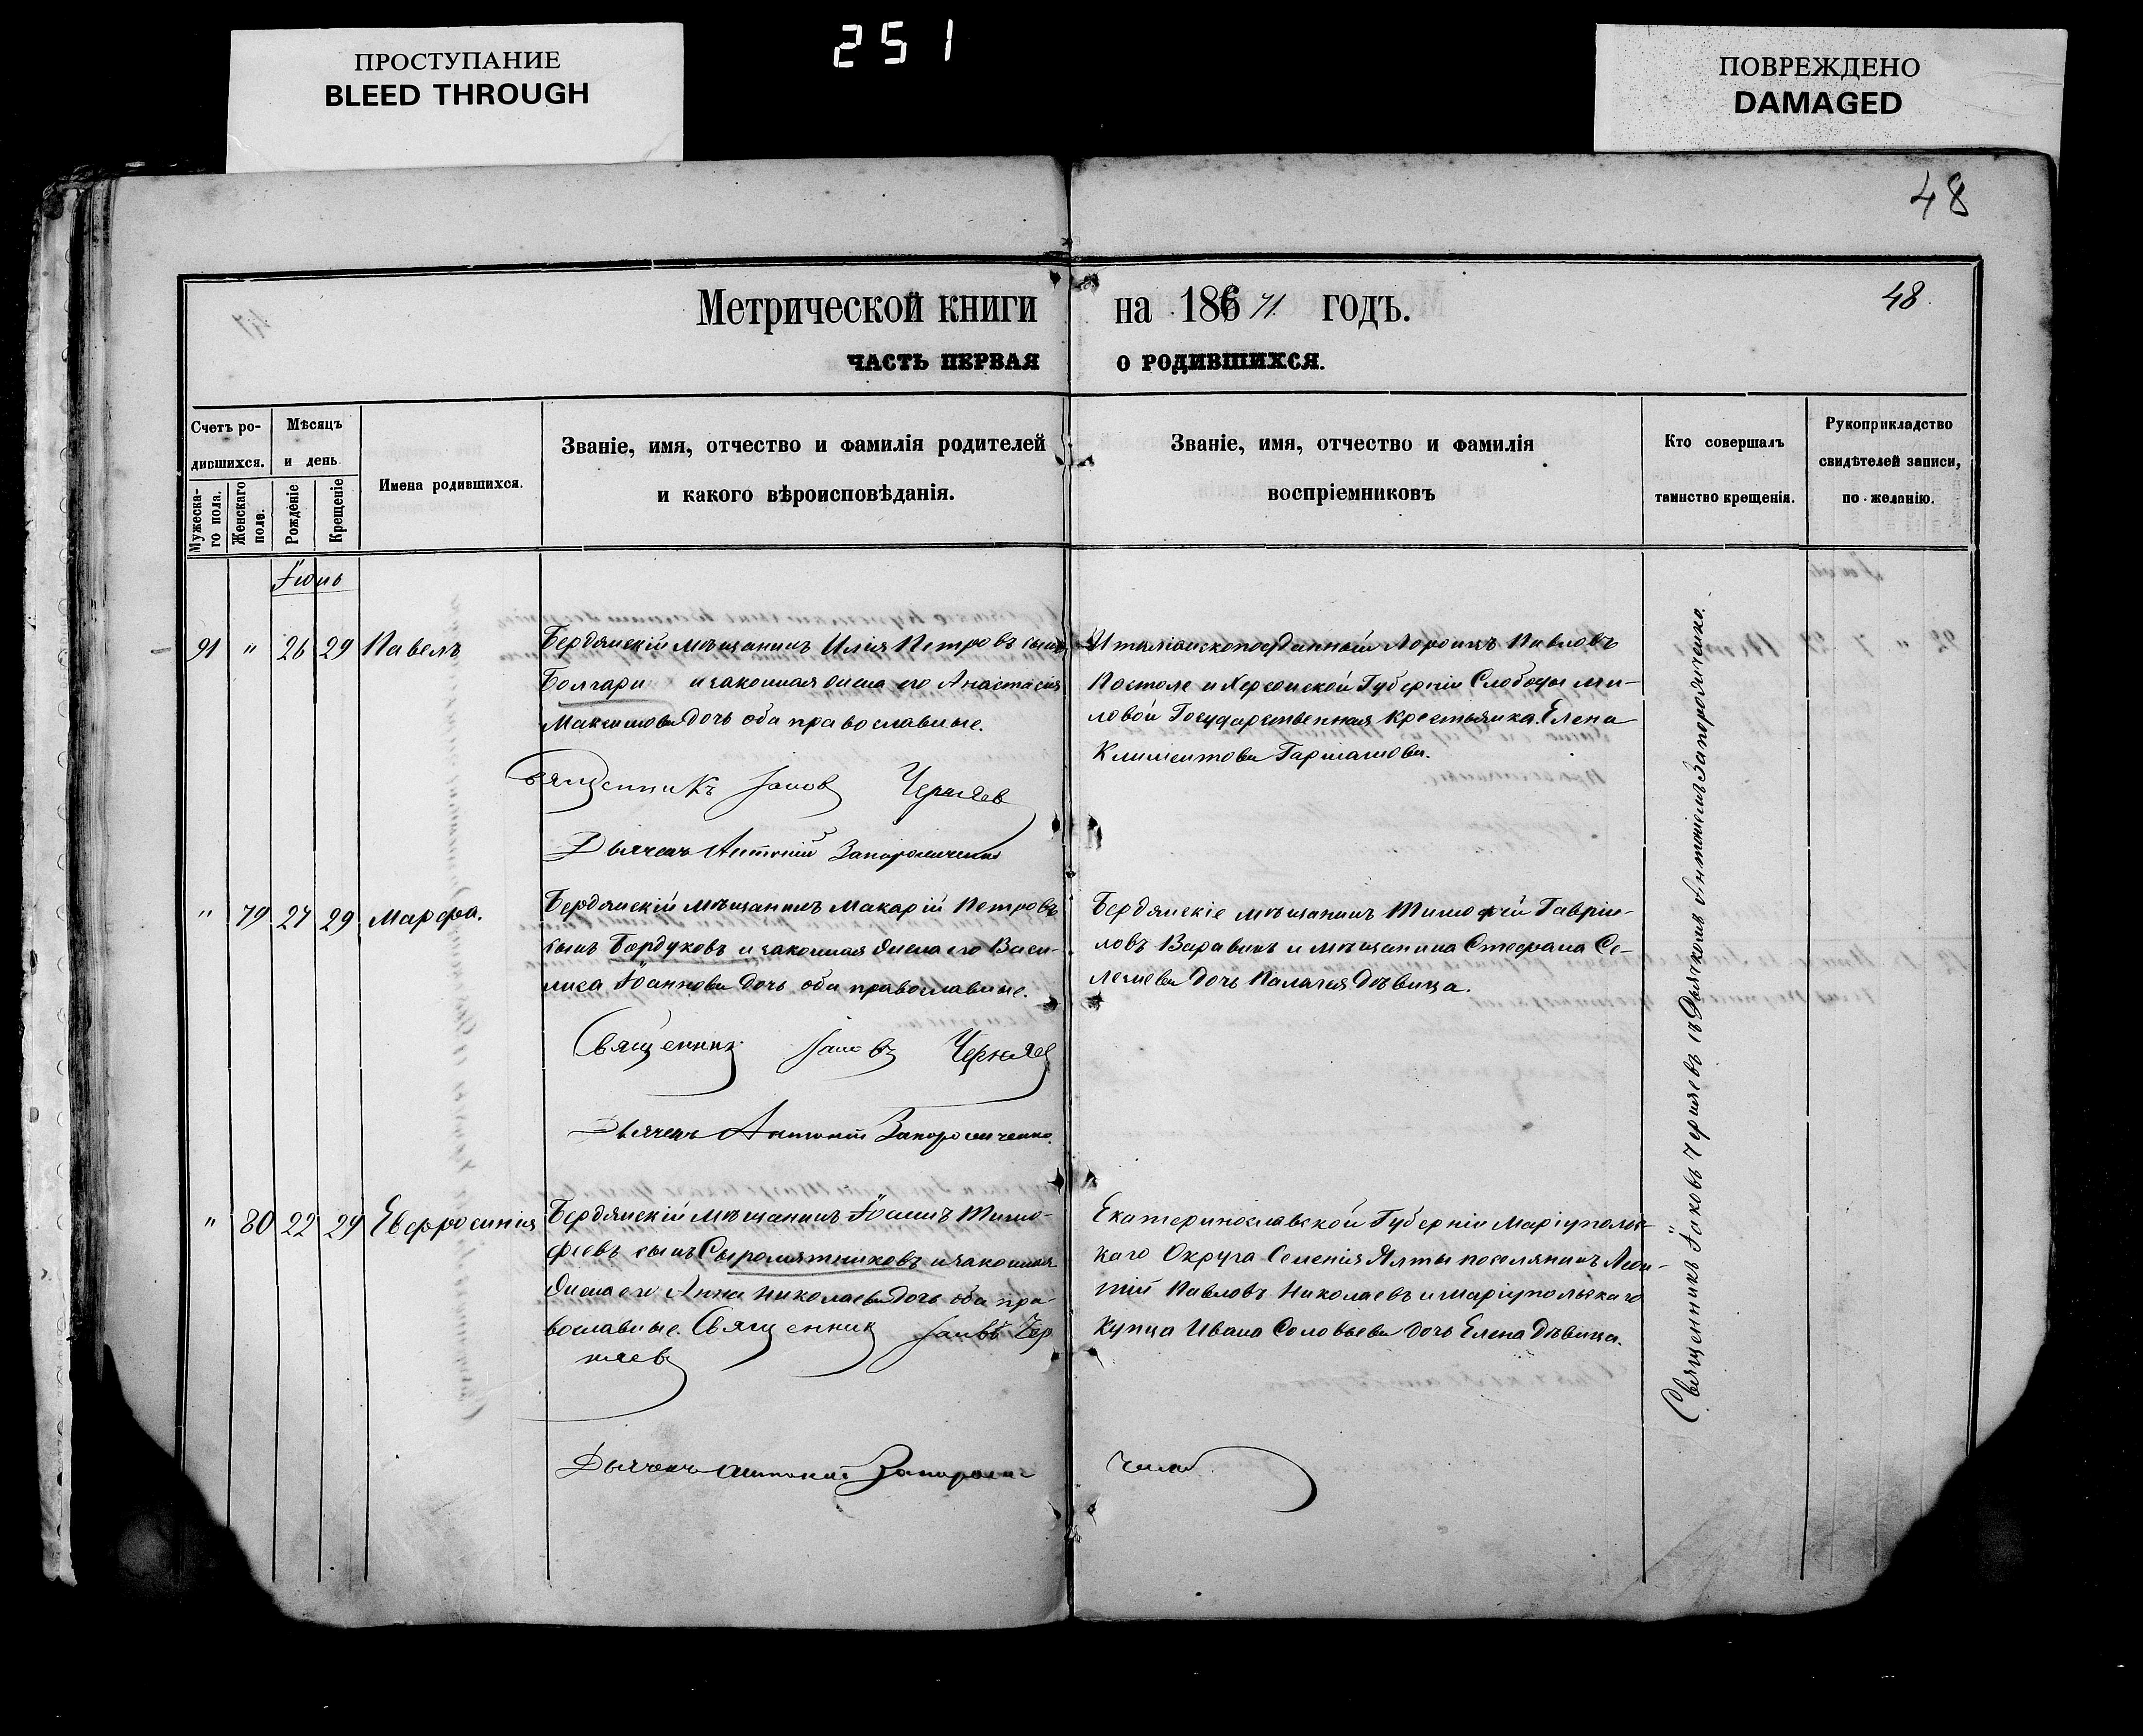 ПРОСТУПАНИЕ
BLEED THROUGH
251
ПОВРЕЖДЕНО
DAMAGED
48
Метрической книги на 186 71 годъ.
48.
ЧАСТЬ ПЕРВАЯ О РОДИВШИХСЯ.
Счетъ ро-
дившихся.
Мужеска-
го пола.
Женскаго
пола.
Мѣсяцъ
и день
Рожденіе
Крещеніе
Имена родившихся.
Званіе, имя, отчество и фамилія родителей
и какого вѣроисповѣданія.
Званіе, имя, отчество и фамилія
воспріемниковъ
Кто совершалъ
таинство крещенія.
Рукоприкладство
свидѣтелей записи,
по желанію.
Іюнь
91 " 26 29 Павелъ
Бердянскій мѣщанинъ Илія Петровъ сынъ
Болгари и законная жена его Анастасія
Максимова дочь оба православные.
Священникъ Іаковъ Черняев
Дьячекъ Антоній Запорожченко
Италіанскоподданный Павловъ
Постоле и Херсонской Губерніи Слободы Ми-
ловой Государственная крестьянка Елена
Климентова
" 79 27 29 Марфа.
Бердянскій мѣщанинъ Макарій Петровъ
сынъ Бордуковъ и законная жена его Васи-
лиса Іоаннова дочь оба православные.
Священникъ Іаковъ Черняев
Дьячекъ Антоній Запорожченко.
Бердянскіе мѣщанинъ Тимофей Гаврiи-
ловъ Варавинъ и мѣщанина Стефана Се-
дочь Палагія Дѣвица.
" 80 22 29 Евфросинія
Бердянскій мѣщанинъ Іоаннъ Тимо-
феевъ сынъ Сыромятниковъ и законная
жена его Анна Николаева дочь оба пра-
вославные. Священникъ Іаковъ Чер
няевъ
Дьячекъ Антоній Запорож ченко.
Екатеринославской Губерніи Маріупольс-
каго Округа Селенія Ялты поселянинъ
Павловъ Николаевъ и Маріупольскаго
Купца Ивана Соловьева дочь Елена Дѣвица.
Священникъ Іаковъ Черняевъ съ Дьячкомъ Антоніемъ Запорожченко.